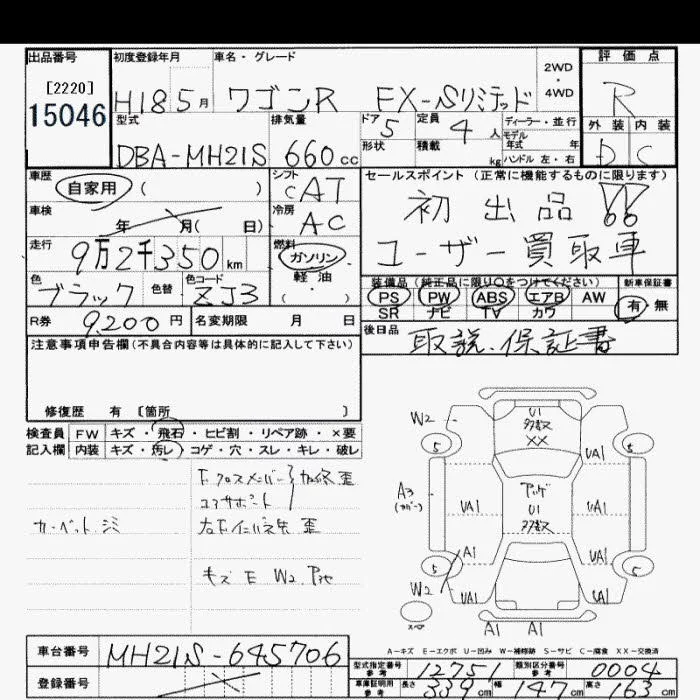 出品番号 初度登録年月 車名・グレード 2WD・4WD 評価点
[2220]
15046
H18 5月 ワゴンR FX-Sリミテッド R
型式 排気量 ドア 5 定員 4人 ディーラー・並行 外装 内装
DBA-MH21S 660cc 形状 積載 kg モデル年式 年 ハンドル 左・右 D C
車歴 シフト セールスポイント (正常に機能するものに限ります)
自家用 ( ) CAT 初出品!!
車検 年 月( 日) 冷房 AC
走行 9万2千350km 燃料 ガソリン・軽油・( ) ユーザー買取車
色 ブラック 色替 色コード ZJ3
装備品 (純正品に限り○をつけてください) 新車保証書
PS PW ABS エアB AW 有・無
SR ナビ TV カワ
R券 9,200円 名変期限 月 日
後日品 取説、保証書
注意事項申告欄(不具合内容等は具体的に記入して下さい)
修復歴 有 [箇所 ]
検査員記入欄 FW キズ・飛石・ヒビ割・リペア跡・×要
内装 キズ・汚レ・コゲ・穴・スレ・キレ・破レ
F.クロスメンバー
コアサポート
カーペットシミ
キズ E W2
W2 U1 多数 XX
5 5
A3 (カバー) UA1 U1 多数 UA1
A1 UA1
5 5
W2 UA1 UA1
スペア A1 A1
A-キズ E-エクボ U-凹み W-補修跡 S-サビ C-腐食 XX-交換済
車台番号 MH21S-645706
型式指定番号 参考 12751 類別区分番号 参考 0004
登録番号
車庫証明用 参考 長さ 339cm 幅 147cm 高さ 163cm